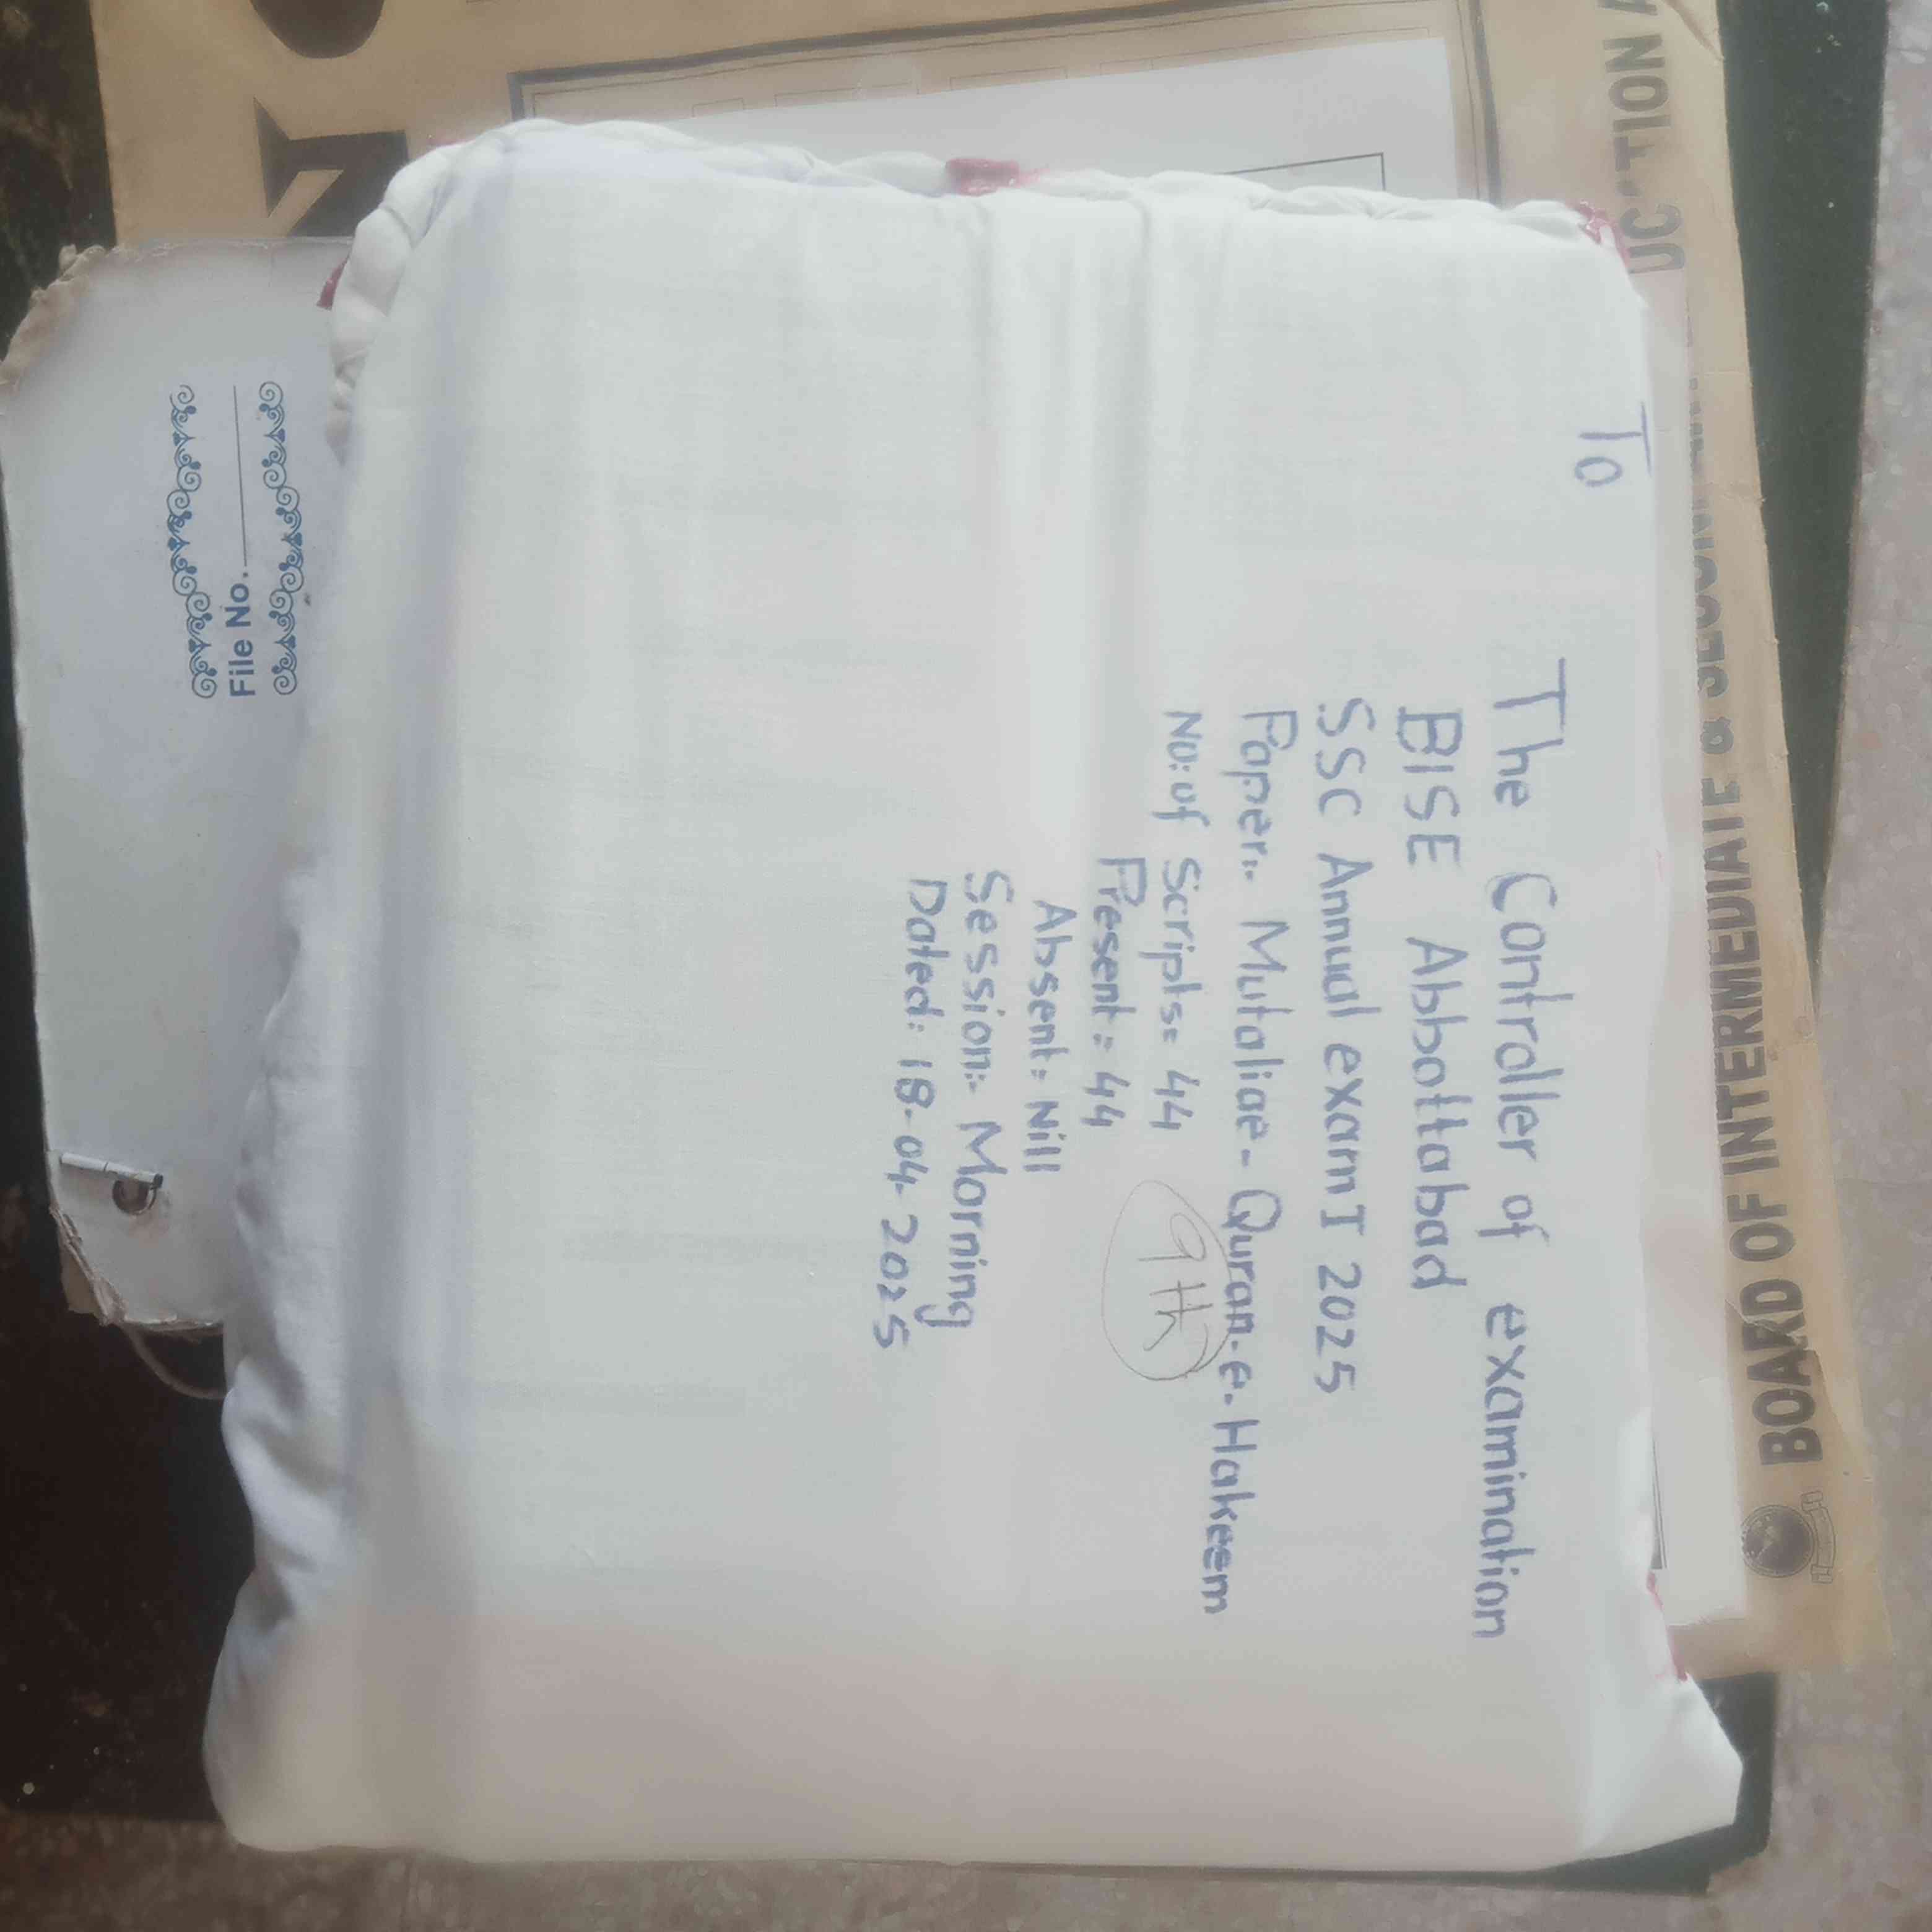 To
The Controller of examination
BISE Abbottabad
SSC Annual exam I 2025
Paper:- Mutaliae - Quran-e-Hakeem
No: of Scripts = 44
Present = 44
9th
Absent = Nill
Session:- Morning
Dated: 18-04-2025
File No.
BOARD OF INTERMEDIATE &